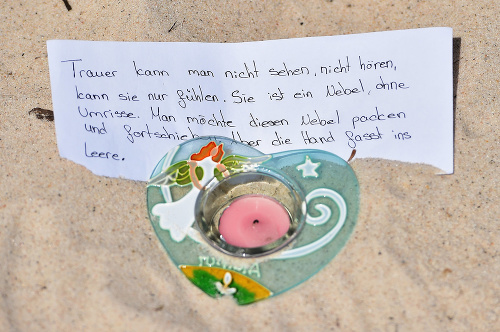 Trauer kann man nicht sehen, nicht hören,
kann sie nur fühlen. Sie ist ein Nebel, ohne
Umrisse. Man möchte diesen Nebel packen
und fortschieben, aber die Hand fasst ins
Leere.